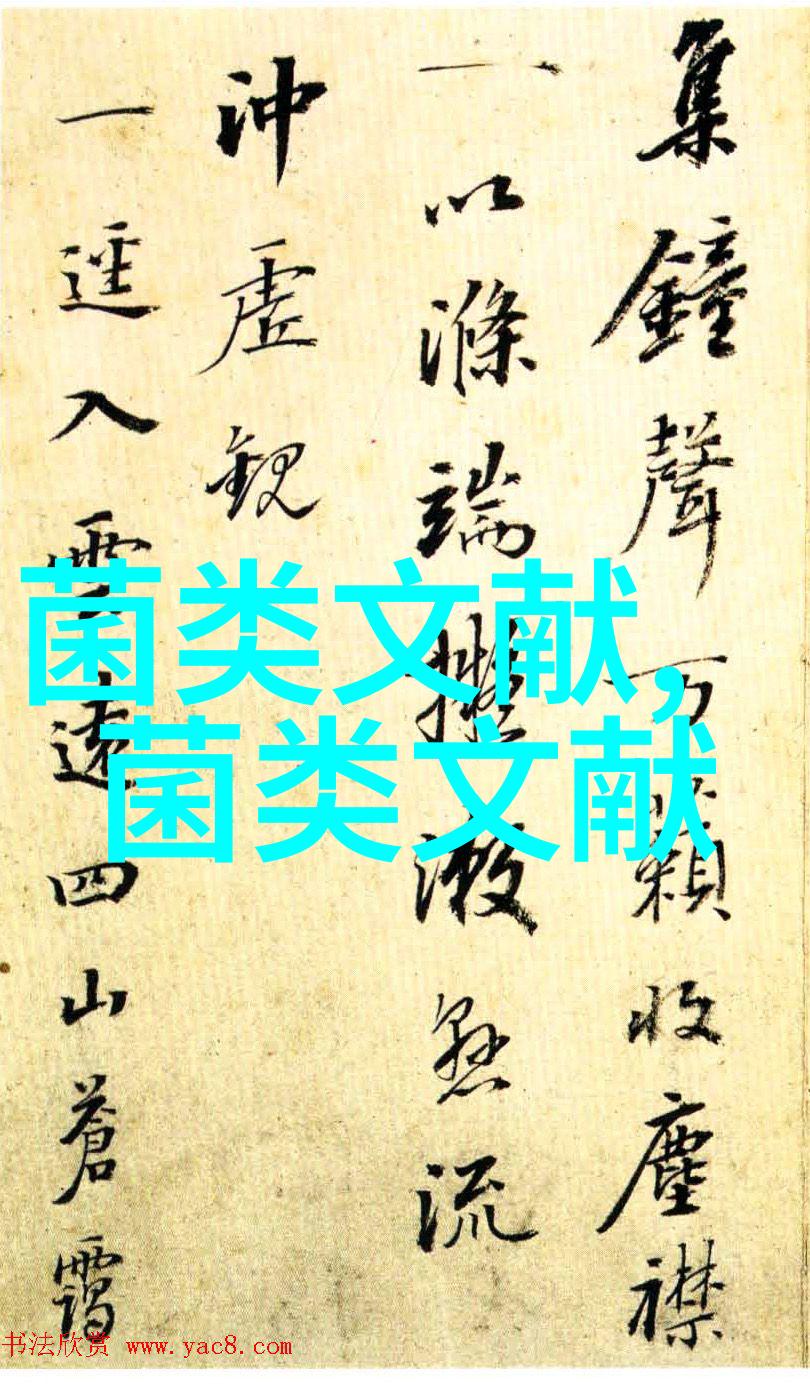 集鐘聲万籟收塵襟
一以滌端擬漱懸流
沖虛觀
一逕入雲遠四山蒼靄
菌类文献，
菌类文献
书法欣赏 www.yac8.com